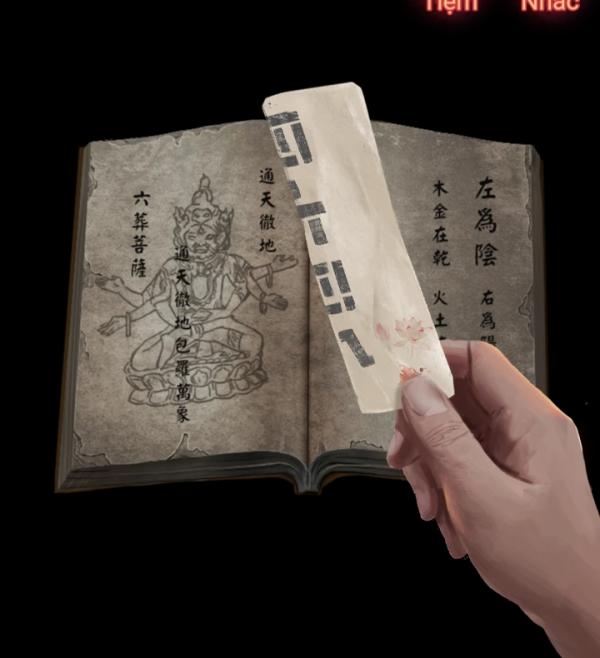 左爲陰 右爲
木金在乾 火土
通天徹地
通天徹地包羅萬象
六葬菩薩